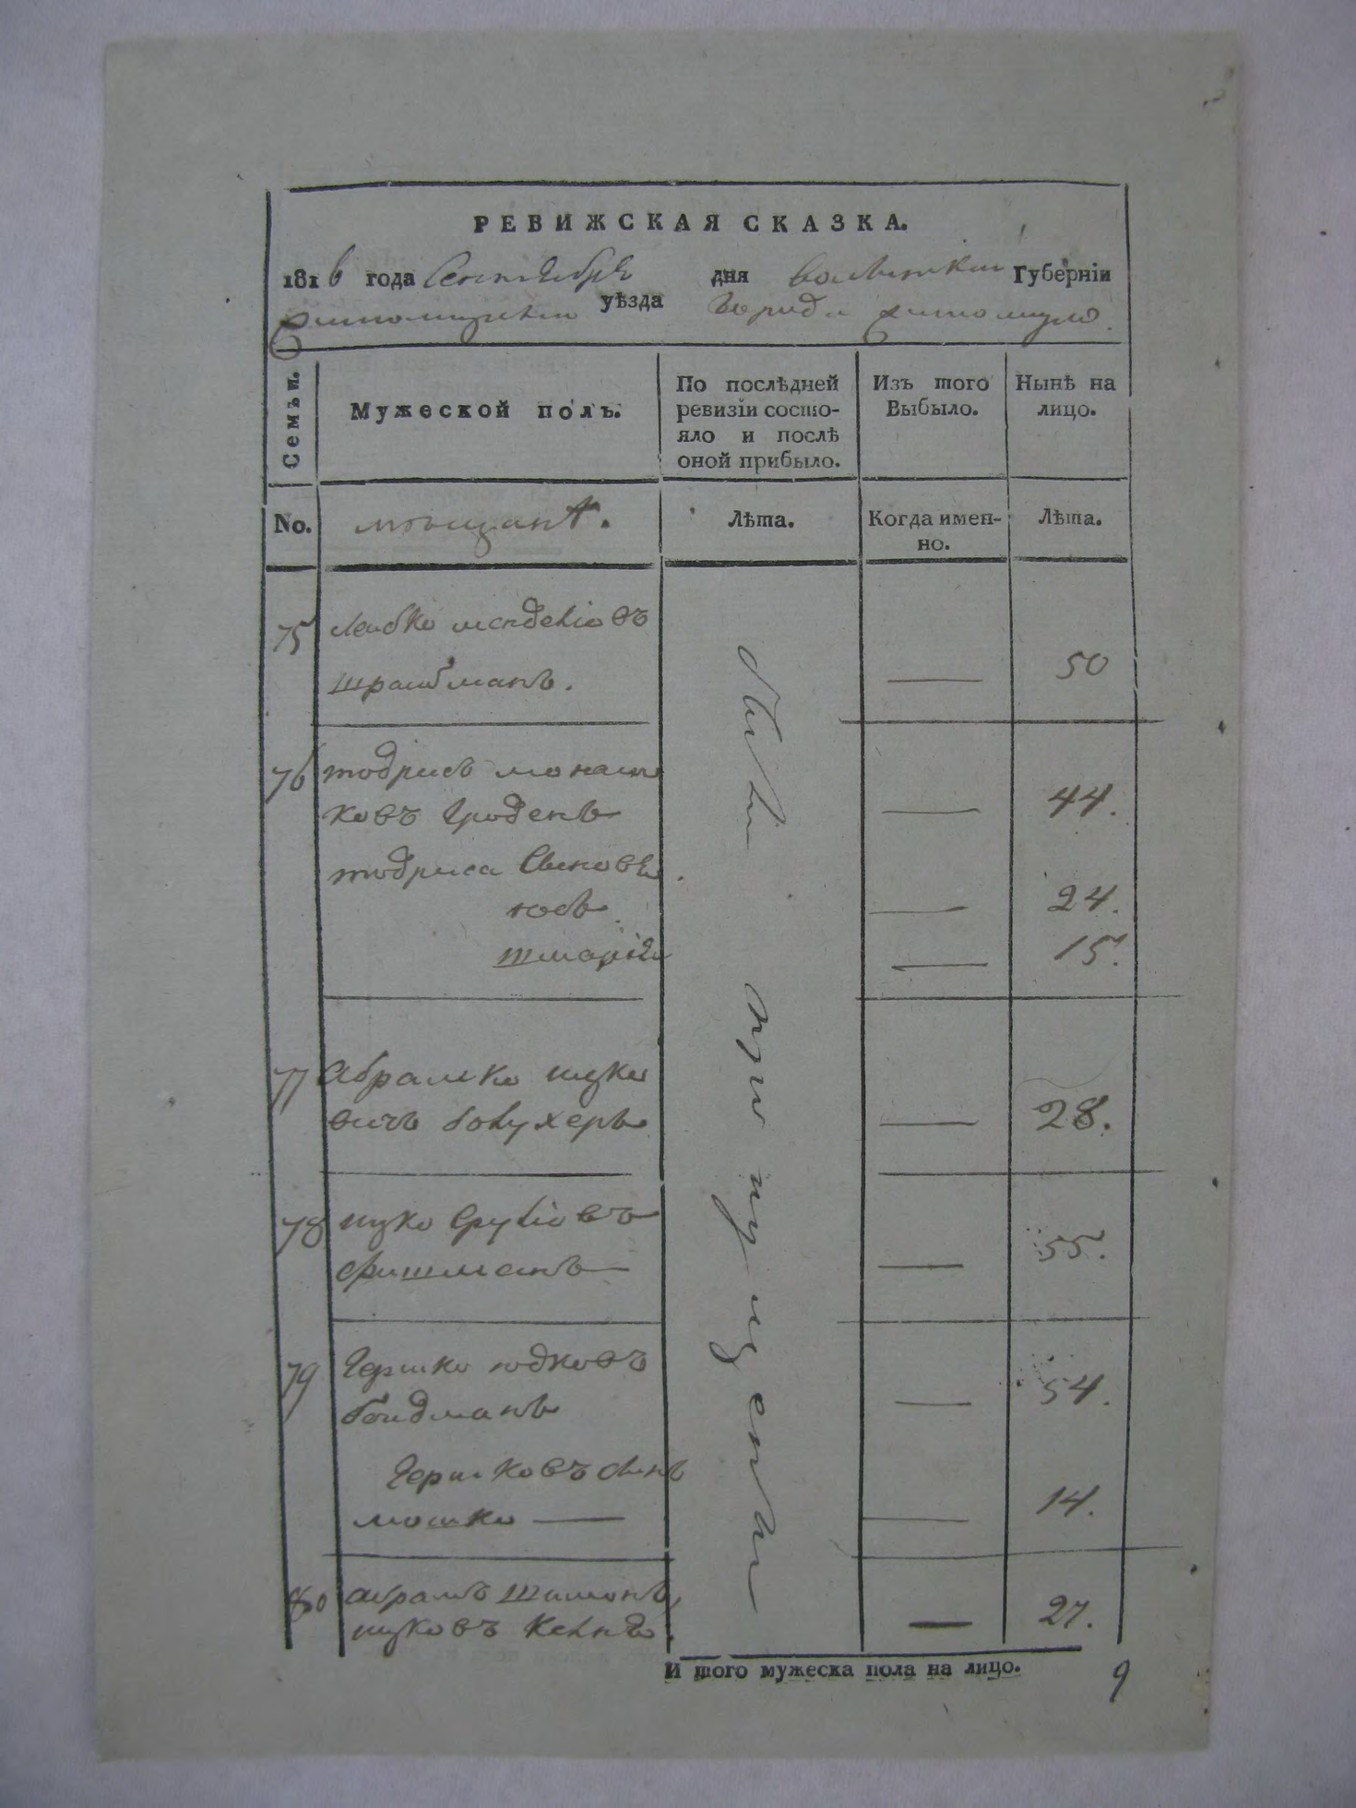 РЕВИЖСКАЯ СКАЗКА.
1816 года Сентября дня Волынской Губерніи
Житомирскаго уѣзда Города Житомира.
Семьи. Мужеской полъ. По послѣдней ревизіи состояло и послѣ оной прибыло. Изъ того Выбыло. Нынѣ на лицо.
No. мѣщанъ. Лѣта. Когда именно. Лѣта.
были пропущены
75 Лейбко менделіовъ
шраибманъ. — 50
76 тодрисъ монаш
ковъ Гроденъ — 44.
тодриса Сыновья.
юсь — 24.
— 15.
77 Абрамко ицко
вичъ — 28.
78 ицко Сруліовъ
Фишманъ — 55.
79 Гершко юдковъ
Гоидманъ — 54.
Гершковъ сынъ
мошко — 14.
80 абрамъ Шимонъ,
ицковъ — 27.
И того мужеска пола на лицо. 9